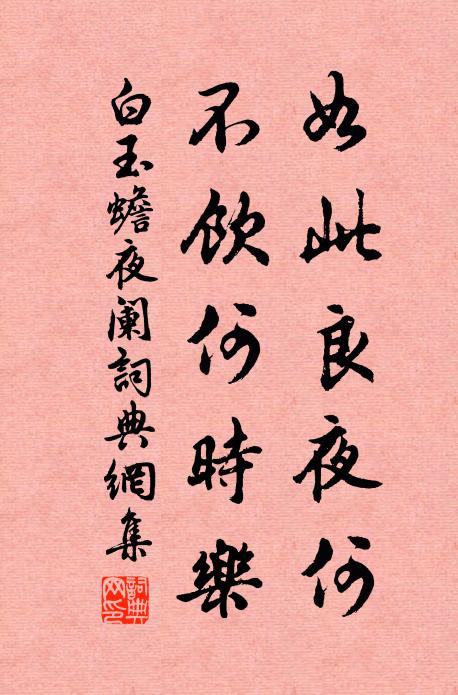 如此良夜何
不飲何時樂
白玉蟾夜闌詞典網集
詞典網印